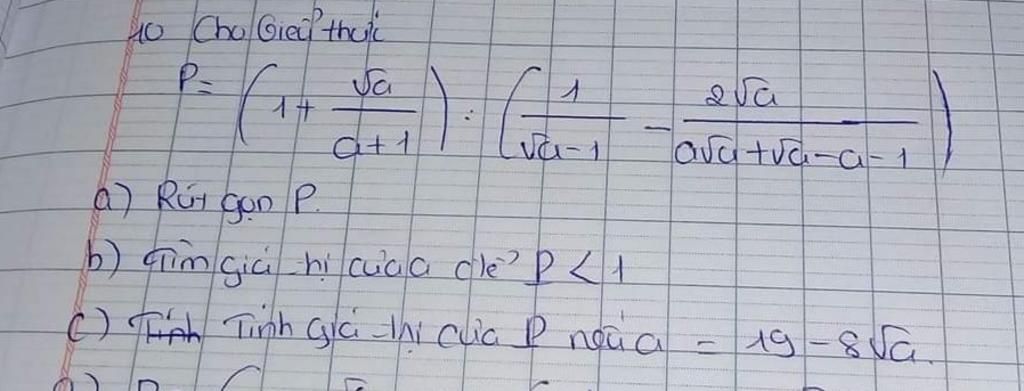 10 Cho Giểu thức
P = ( 1 + √a / a+1 ) : ( 1 / √a-1 - 2√a / a√a+√a-a-1 )
a) Rút gọn P.
b) Tìm giá trị của a để P < 1
c) Tính giá trị của P nếu a = 19 - 8√a.